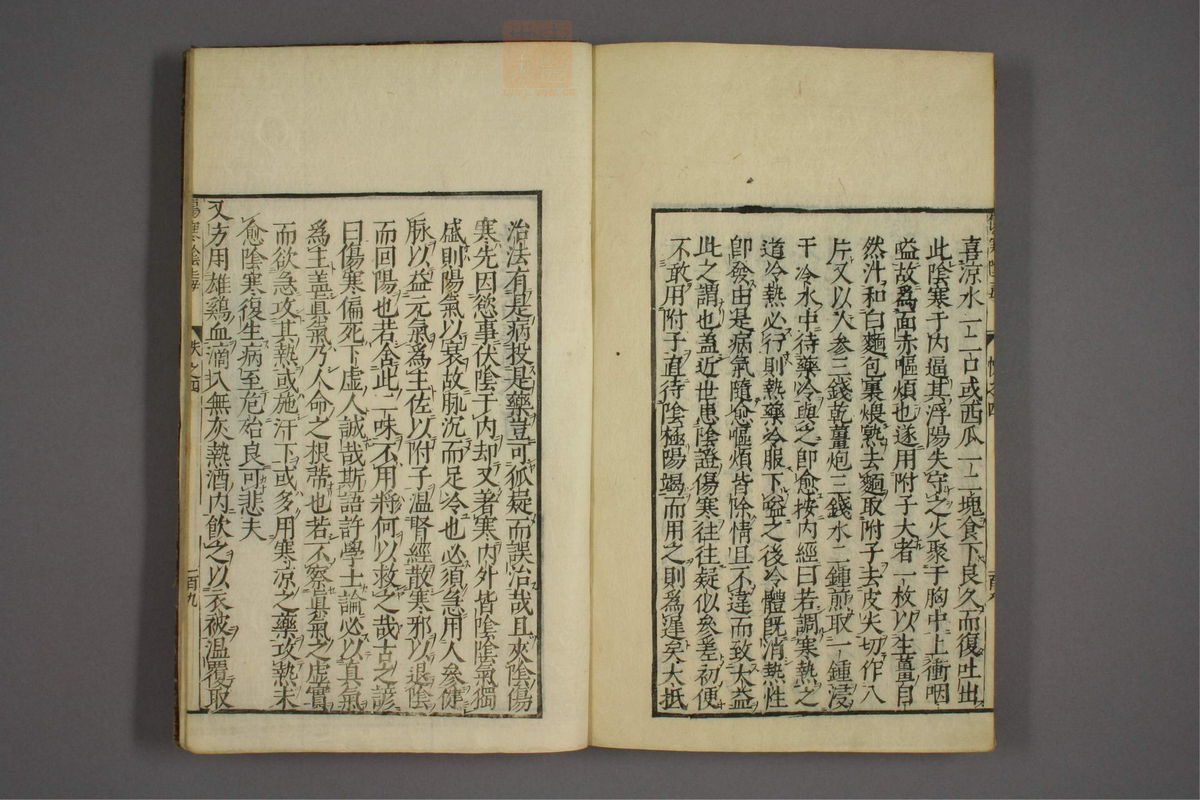 喜凉水一二口或西瓜一二塊食下良久而復吐出
此陰寒于内逼其浮陽失守之火聚于胸中上衝咽
嗌故爲面赤嘔煩也遂用附子大者一枚以生薑自
然汁和白麵包裹煨熟去麵取附子去皮尖切作八
片又以人参三錢乾薑炮三錢水二鍾煎取一鍾浸
于冷水中待藥冷與之即愈按内經曰若調寒熱之
道冷熱必行則熱藥冷服下嗌之後冷體既消熱性
即發由是病氣隨愈嘔煩皆除情且不違而致大益
此之謂也蓋近世患陰證傷寒往往疑似參差初便
不敢用附子直待陰極陽竭而用之則爲遲矣大抵
治法有是病投是藥豈可狐疑而誤治哉且夾陰傷
寒先因慾事伏陰于内却又著寒内外皆陰陰氣獨
盛則陽氣以衰故脉沉而足冷也必須急用人參健
脉以益元氣爲主佐以附子溫腎經散寒邪以退陰
而回陽也若舍此二味不用將何以救之哉古之諺
曰傷寒偏死下虚人誠哉斯語許學士論必以真氣
爲主盖真氣乃人命之根蒂也若不察真氣之虚實
而欲急攻其熱或施汗下或多用寒凉之藥攻熱未
愈陰寒復生病至危殆良可悲夫
又方用雄鷄血滴入無灰熱酒内飲之以衣被溫覆取
卷之四
一百九